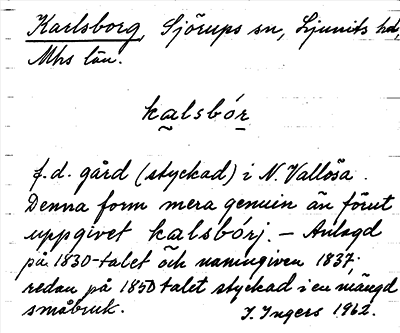 Karlsborg, Sjörups sn, Ljunits hd,
Mhs län.
kalsbór
f.d. gård (styckad) i N. Vallösa.
Denna form mera genuin än förut
uppgivet kalsbórj. – Anlagd
på 1830-talet och namngiven 1837.
redan på 1850 talet styckad i en mängd
småbruk. I. Ingers 1962.